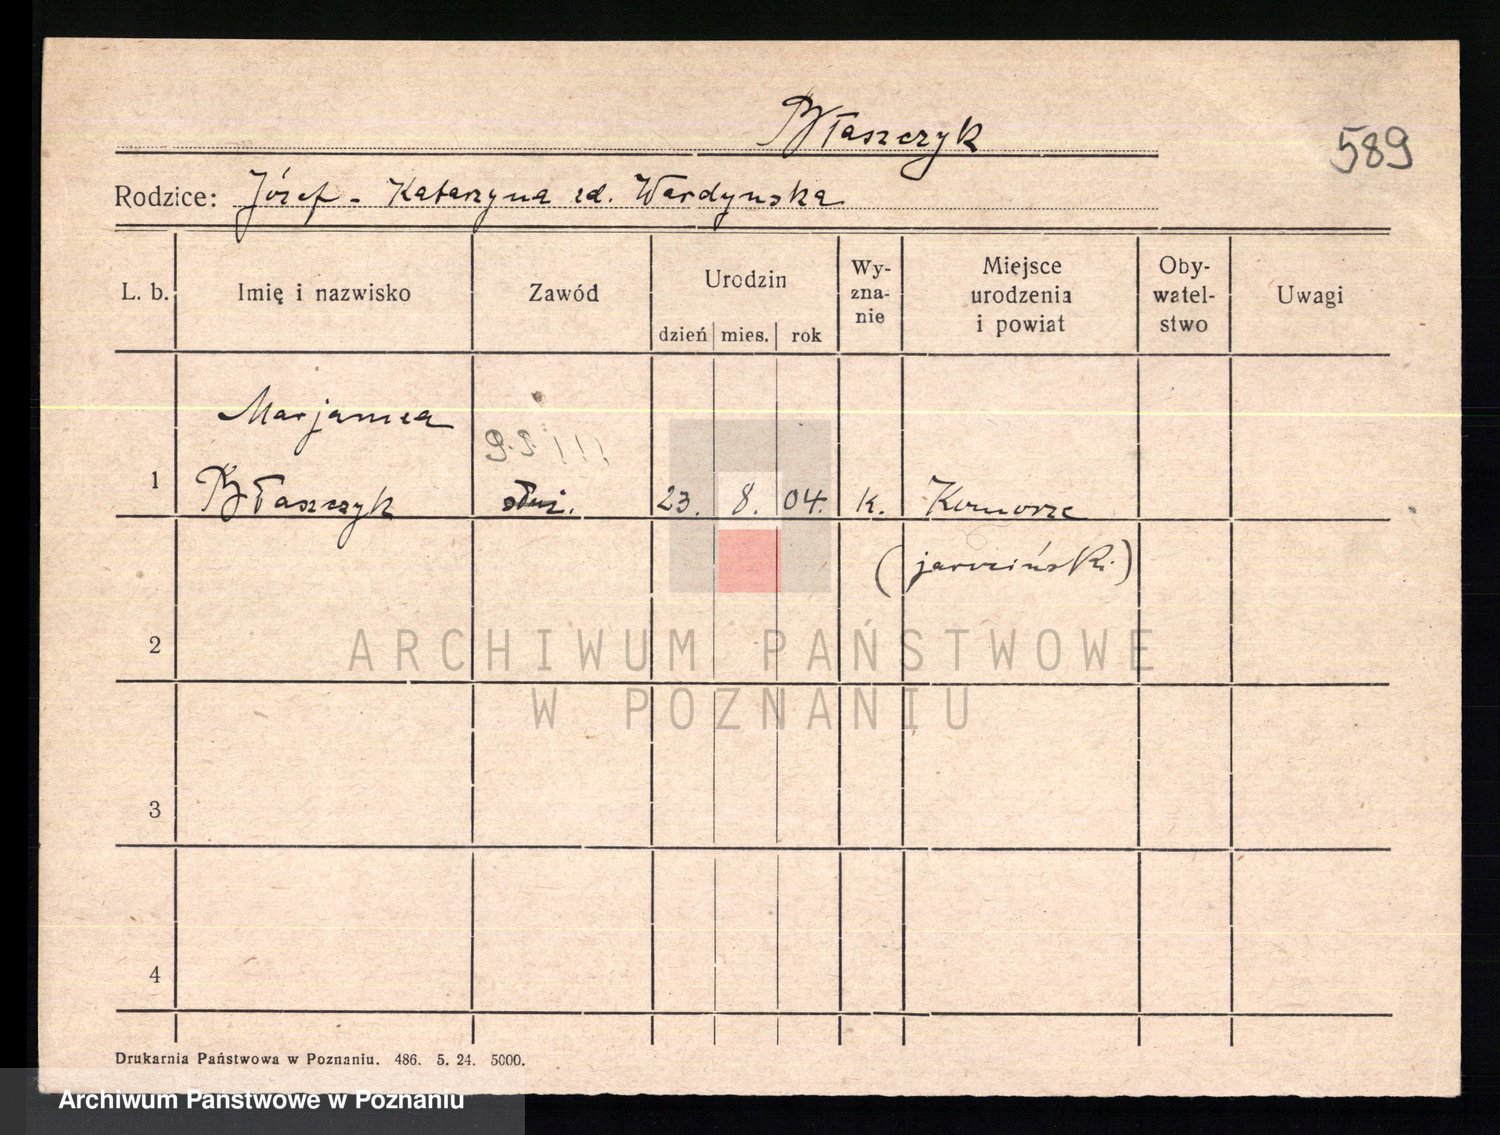 Błaszczyk
589
Rodzice: Józef - Katarzyna zd. Wardyńska
L. b.
Imię i nazwisko
Zawód
Urodzin
dzień
mies.
rok
Wy-
zna-
nie
Miejsce
urodzenia
i powiat
Oby-
watel-
stwo
Uwagi
Marjanna
1
Błaszczyk
służ.
23.
8.
04.
k.
Komorze
(jarociński)
2
ARCHIWUM PAŃSTWOWE
W POZNANIU
3
4
Drukarnia Państwowa w Poznaniu. 486. 5. 24. 5000.
Archiwum Państwowe w Poznaniu